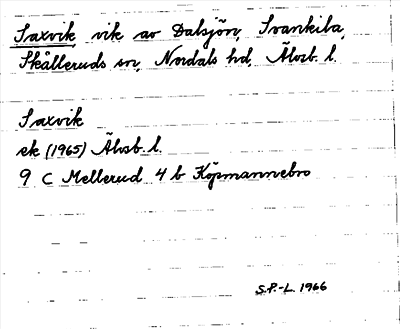 Saxvik, vik av Dalsjön, Svankila,
Skålleruds sn, Nordals hd, Älvsb. l.
Saxvik
ek (1965) Älvsb. l.
9 C Mellerud 4 b Köpmannebro
S.P.-L. 1966